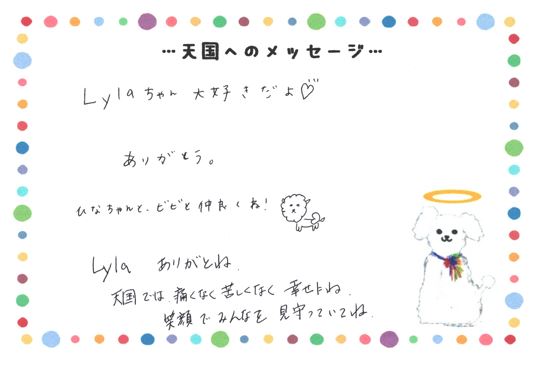 …天国へのメッセージ…
Lylaちゃん 大好きだよ♡
ありがとう。
ひなちゃんと、ビビと仲良くね!
Lyla ありがとね.
天国では、痛くなく苦しくなく 幸せよね.
笑顔でみんなを 見守っていてね.